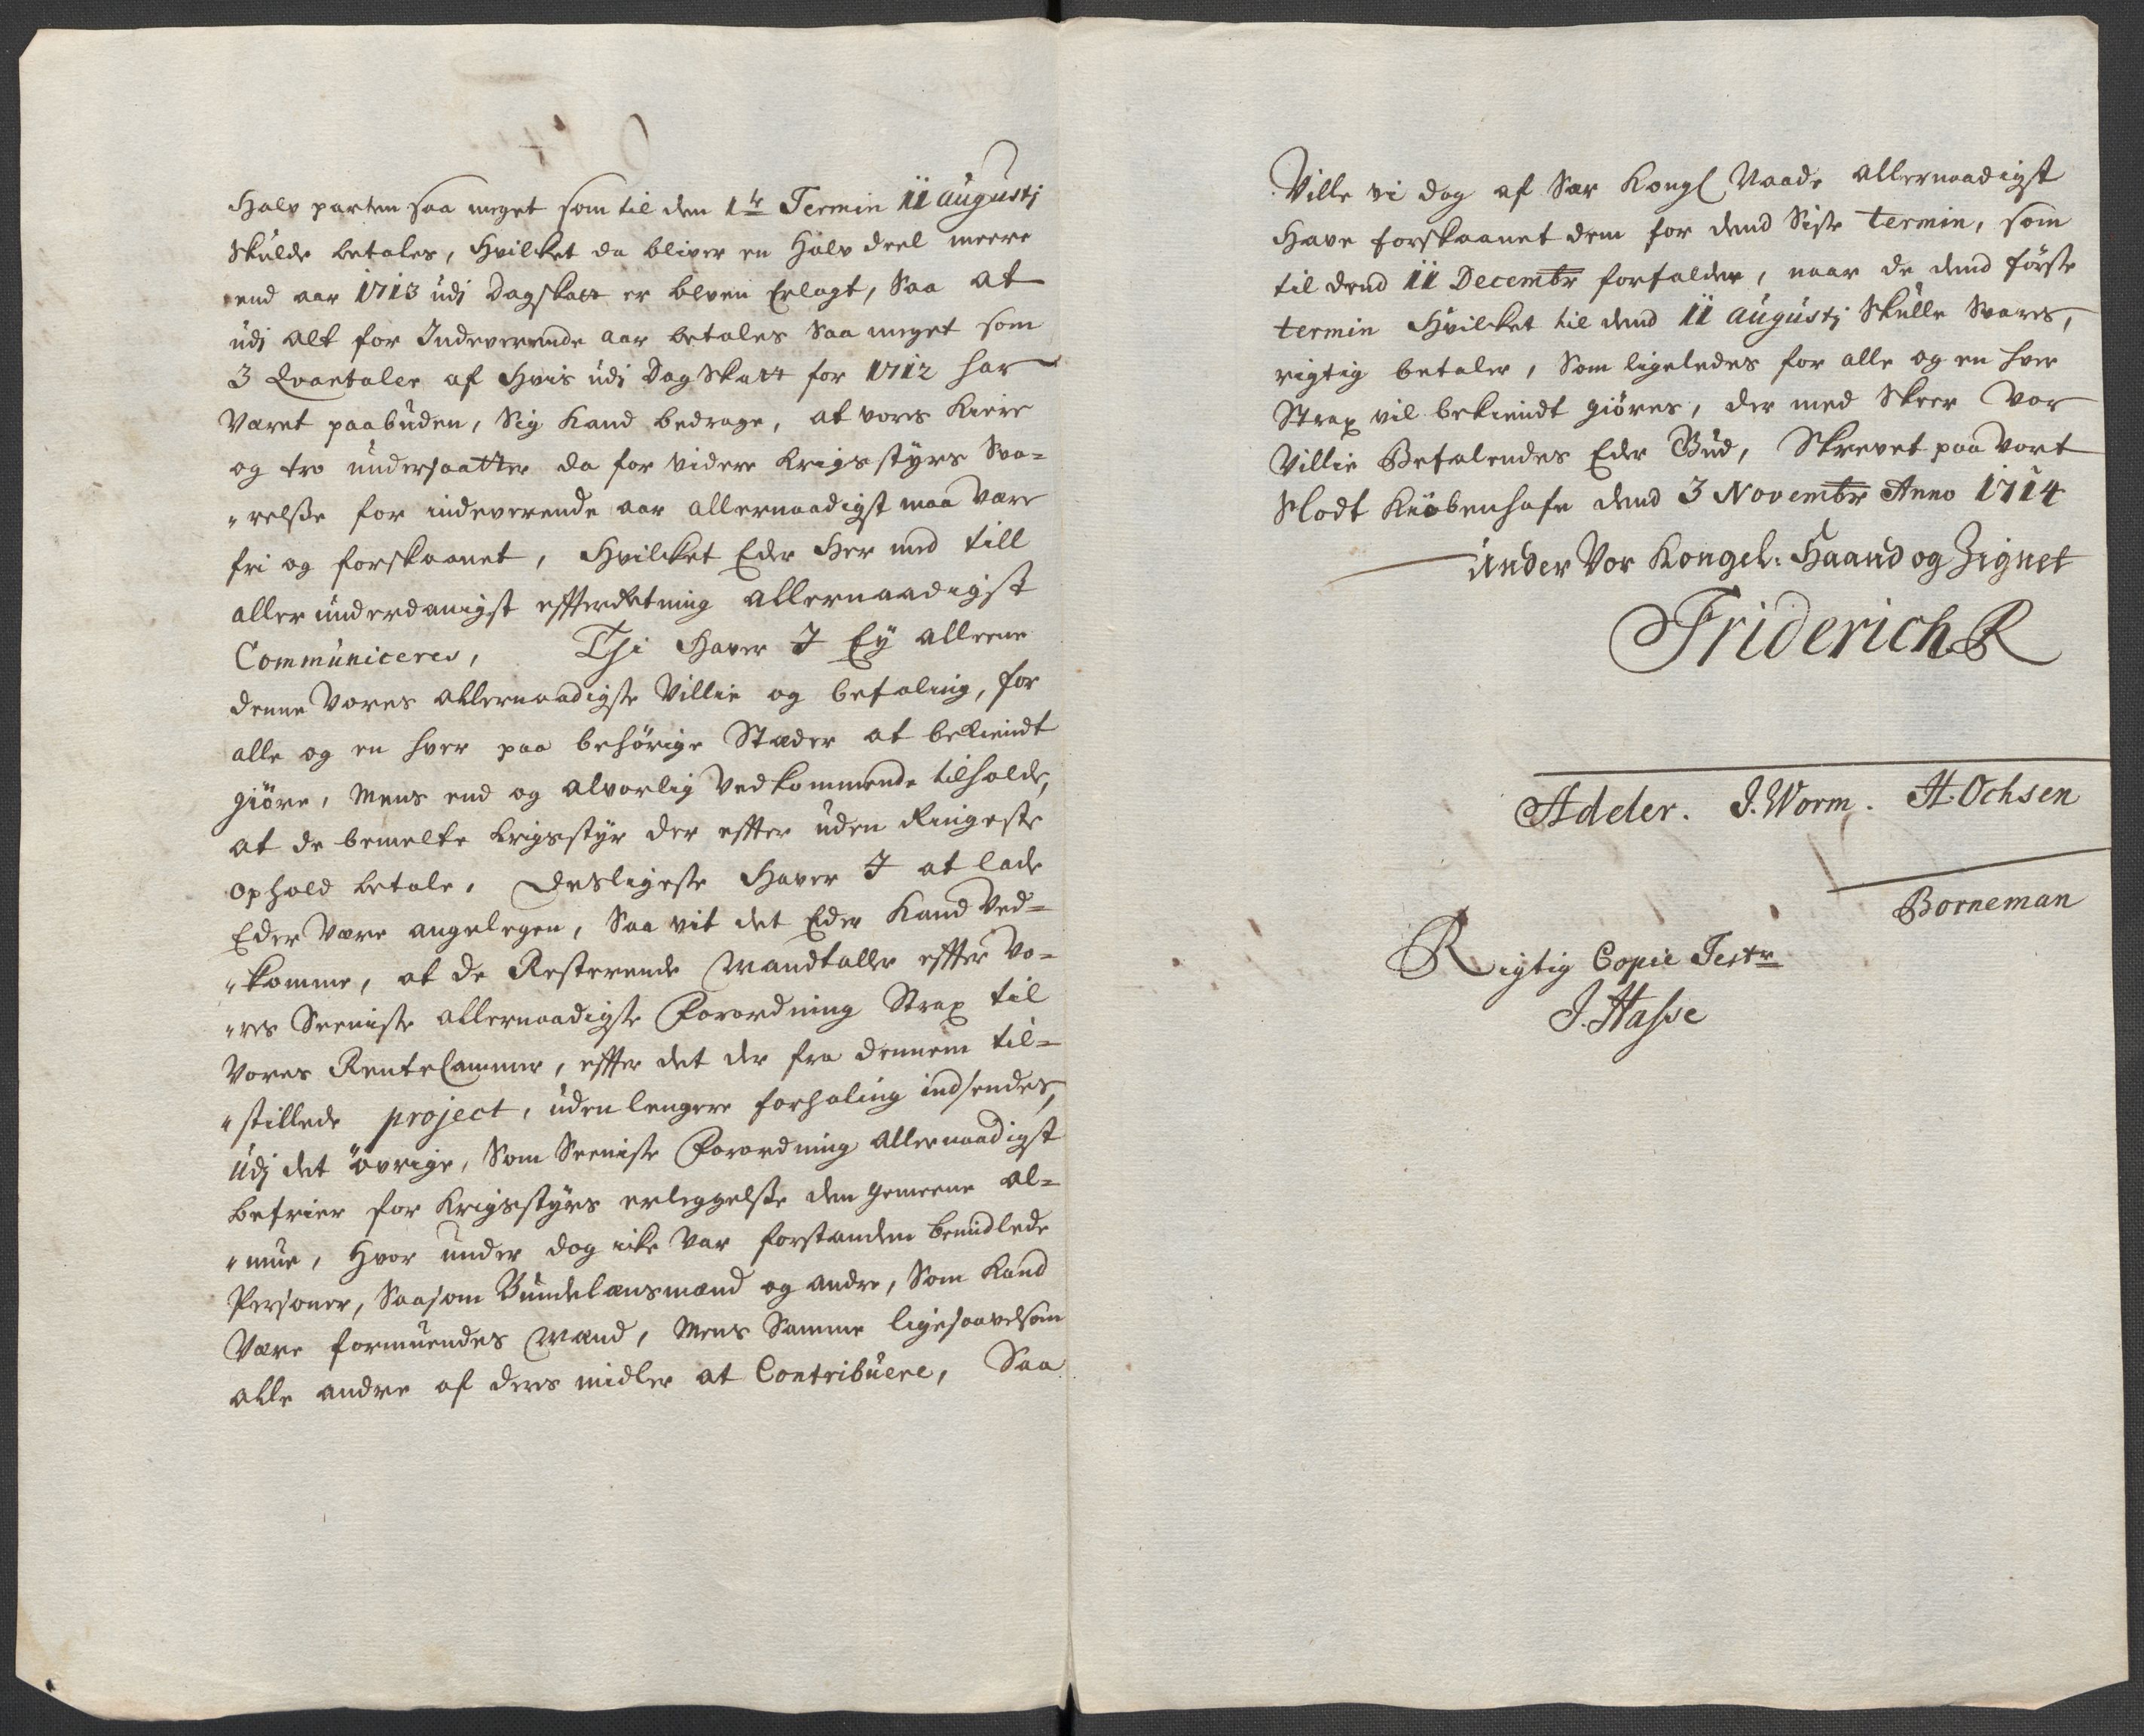 Halv parten saa meget som til den 1te Termin 11 Augustj
skulde betales, Hvilcket da bliver en Halv deel meere
end aar 1713 udj Dagskatt er bleven Erlagt, Saa at
udj alt for Indeverende aar betales saa meget som
3 Qvartaler af Hvis udj Dagskatt for 1712 har
Været paabuden, Sig Kand bedrage, at vores kiere
og tro undersaatter da for videre Krigsstyrs Sva=
"relsse for indeverende aar allernaadigst maa være
fri og forskaanet, Hvilcket Eder Her med till
allerunderdanigst effterRetning allernaadigst
Communiceres, Thi Haver I Ey alleene
denne Vores allernaadigste Villie og befaling, for
alle og en hver paa behörige Stæder at bekiendt
giöre, Mens end og alvorlig Vedkommende tilholde,
at de bemelte Krigsstyr der effter uden Ringeste
Ophold betale, Desligeste Haver I at lade
Eder Være angelegen, Saa vit det Eder Kand Ved=
"komme, at de Resterende Mandtaller effter Vo=
"res Seeniste allernaadigste Forordning Strax til
Vores RenteCammer, effter det der fra dennem til=
"stillede project, uden lengere forhaling indsendes,
Udj det övrige, Som Seeniste Forordning allernaadigst
befrier for Krigsstyrs erleggelsse den gemeene al=
"mue, Hvor under dog icke Var forstanden bemidlede
Personer, Saasom Bundelænsmænd og andre, Som Kand
Være formuendes Mænd, Mens Samme ligesaavelsom
alle andre af deres midler at Contribuere, Saa
Ville vi dog af Sær Kongl Naade allernaadigst
Have forskaanet dem for dend Siste termin, som
til dend 11 Decembr forfalder, naar de dend förste
termin Hvilcket til dend 11 Augustj Skulle Svares,
rigtig betaler, Som ligeledes for alle og en hver
Strax vil bekiendt giöres, der med Skeer Vor
Villie Befalendes Eder Gud, Skrevet paa Vort
Slodt Kiöbenhafn dend 3 Novembr Anno 1714
Under Vor Kongel: Haand og Zignet
Friderich R
Adeler. J. Worm. H. Ochsen
Borneman
Rigtig Copie Testr
J. Hasse